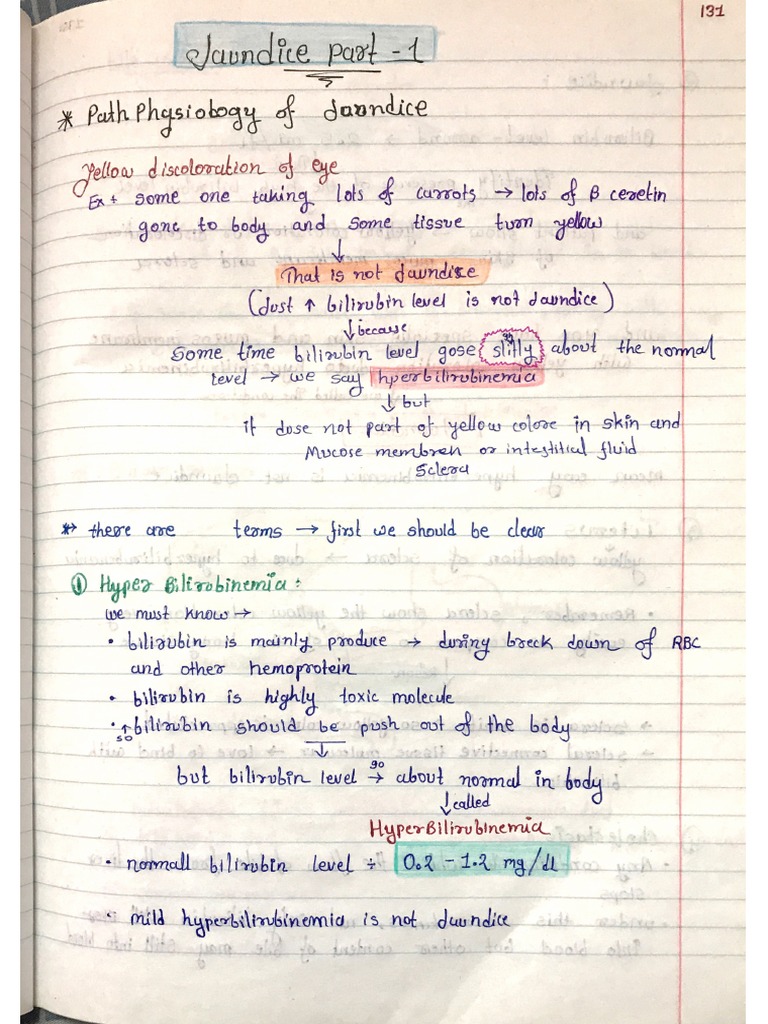 131
Jaundice part - 1
* Path Physiology of Jaundice
Yellow discoloration of eye
Ex + some one taking lots of carrots → lots of β ceretin
gone to body and some tissue turn yellow
↓
That is not Jaundice
(Just ↑ bilirubin level is not Jaundice)
↓ because
Some time bilirubin level gose slitly about the normal
level → we say hperbilirubinemia
↓ but
it dose not part of yellow colore in skin and
Mucose membren or intestitial fluid
Sclera
** there are terms → first we should be clear
① Hyper Bilirobinemia :
we must know →
• bilirubin is mainly produce → during breck down of RBC
and other hemoprotein
• bilirubin is highly toxic molecule
• ↑ bilirubin should be push out of the body
so
↓
but bilirubin level go → about normal in body
↓ called
HyperBilirubinemia
• normall bilirubin level ÷ 0.2 - 1.2 mg/dl
• mild hyperbilirubinemia is not Jaundice